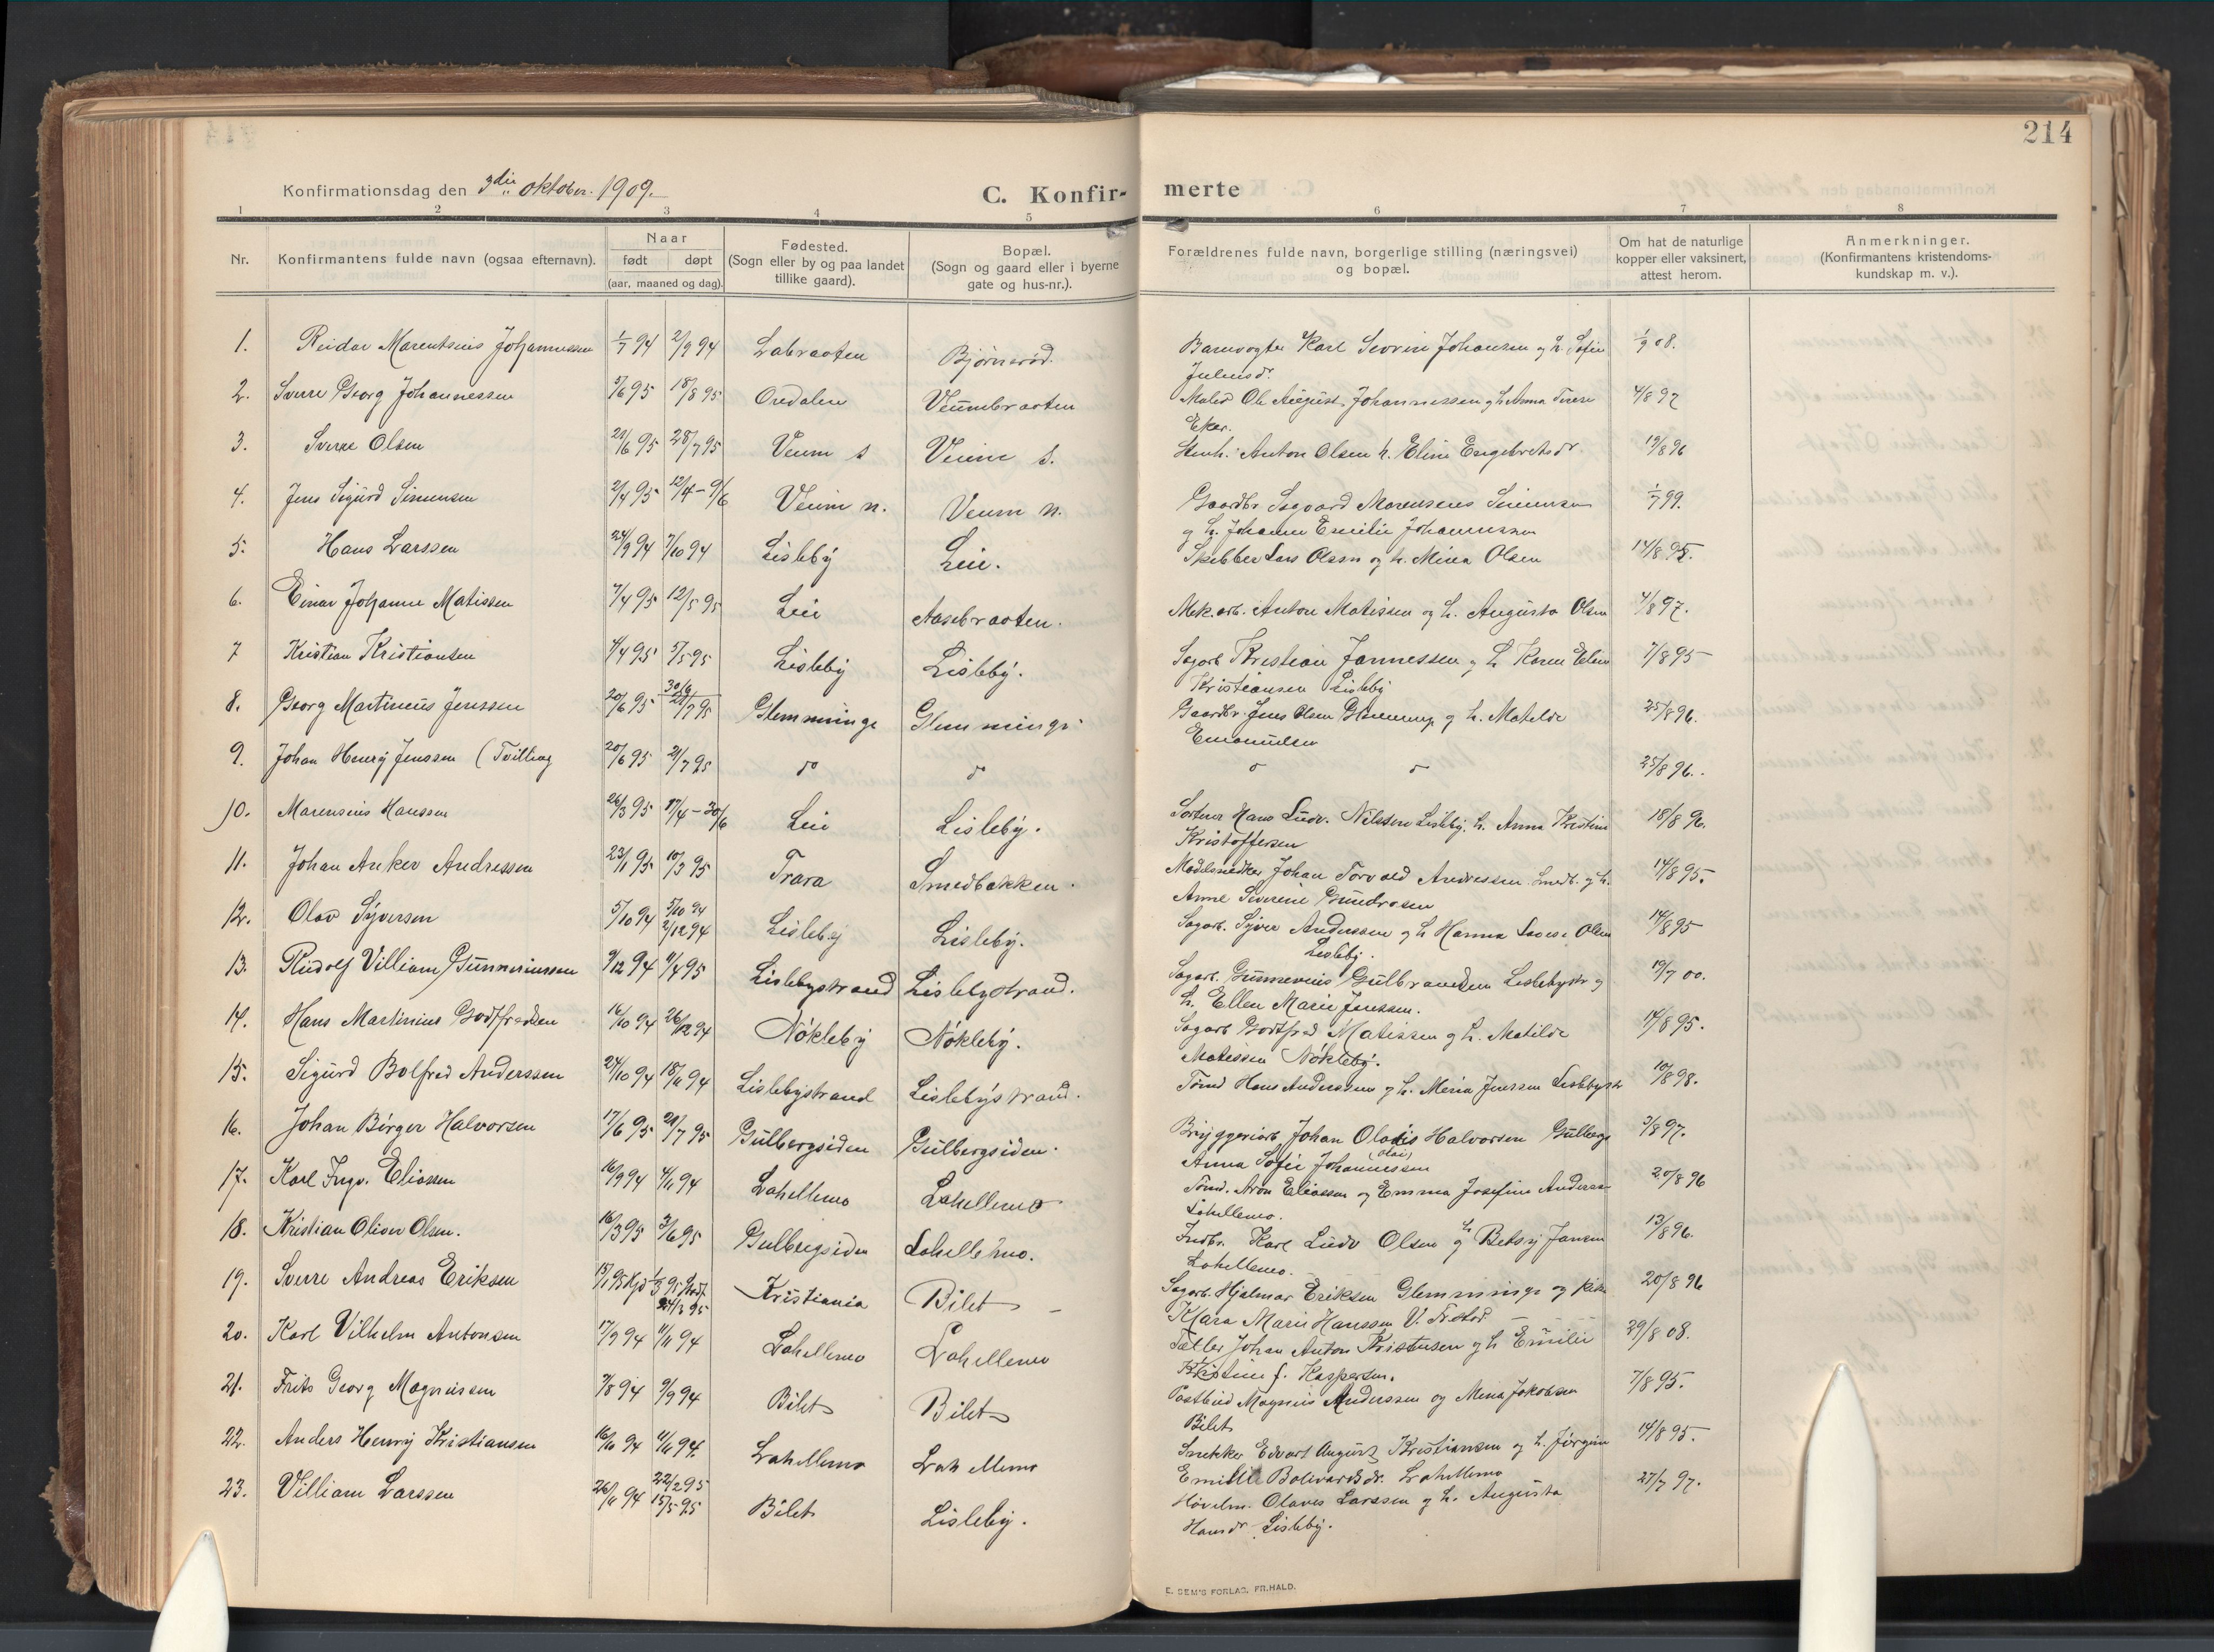 214
Konfirmationsdag den 3die oktober 1909.
C. Konfir-merte
1 2 3 4 5 6 7 8
Nr.
Konfirmantens fulde navn (ogsaa efternavn).
Naar
født døpt
(aar, maaned og dag).
Fødested.
(Sogn eller by og paa landet
tillike gaard).
Bopæl.
(Sogn og gaard eller i byerne
gate og hus-nr.).
Forældrenes fulde navn, borgerlige stilling (næringsvei)
og bopæl.
Om hat de naturlige
kopper eller vaksinert,
attest herom.
Anmerkninger.
(Konfirmantens kristendoms-
kundskap m. v.).
1. Reidar Marentsius Johannessen 1/7 94 2/9 94 Labraaten Bjørnerød. Banevogter Karl Severin Johansen og h. Sofie 1/9 08.
Juliusdr.
2. Sverre Georg Johannessen 5/6 95 18/8 95 Oredalen Veumbraaten Maler Ole August Johannessen og h. Anna Terese 4/8 97
Eker.
3. Sverre Olsen 21/6 95 28/7 95 Veum s Veum s. Stenh. Anton Olsen h. Eline Engebretsdr. 19/8 96
4. Jens Sigurd Simensen 2/4 95 12/4 - 9/6 Veum n. Veum n. Gaardbr. Sigvard Marensius Simensen 1/7 99.
og h. Johanne Emilie Johannessen
5. Hans Larssen 24/9 94 7/10 94 Lisleby Leie. Skibber Lars Olsen og h. Mina Olsen 14/8 95.
6. Einar Johanne Matissen 7/4 95 12/5 95 Leie Aasebraaten. Mek.arb. Anton Matissen og h. Augusta Olsen 4/8 97.
7 Kristian Kristiansen 4/4 95 5/5 95 Lisleby Lisleby. Sagarb. Kristian Jannessen og h. Karen Eline 7/8 95
Kristiansen Lisleby
8. Georg Martineus Jenssen 20/6 95 30/6 21/7 95 Glemminge Glemminge Gaardbr. Jens Olsen Glemminge og h. Matilde 25/8 96.
Emanuelsen
9. Johan Henry Jenssen (Tvilling 20/6 95 21/7 95 do do do do 25/8 96.
10. Marensius Hanssen 26/3 95 17/4 - 30/6 Leie Lisleby. Sorterer Hans Ludv. Nilssen Lisleby. h. Anna Kristine 18/8 96.
Kristoffersen
11. Johan Anker Andressen 23/1 95 10/3 95 Trara Smedbakken. Modelsnedker Johan Torvald Andressen Smedb. og h. 14/8 95.
Anne Severine Gundrosen
12. Olav Syversen 5/10 94 5/10 94 Lisleby Lisleby. Sagarb. Syver Anderssen og h Hanna Lovise Olsen 14/8 95
2/12 94 Lisleby.
13. Rudolf Villiam Gunneriussen 9/12 94 4/4 95 Lislebystrand Lislebystrand. Sagarb. Gunnerius Gulbrandsen Lislebystr og 19/7 00.
h. Ellen Marie Jenssen.
14. Hans Martinius Godtfredsen 16/10 94 26/12 94 Nökleby Nökleby. Sagarb Godtfred Matissen og h. Matilde 14/8 95.
Matissen Nökleby.
15. Sigurd Bolfred Anderssen 24/10 94 18/11 94 Lislebystrand Lislebystrand. Tömd Hans Anderssen og h. Mina Jenssen Lislebystr 10/8 98.
16. Johan Birger Halvorsen 17/6 95 21/7 95 Gulbergsiden Gulbergsiden. Bryggeriarb Johan Olavis Halvorsen Gulbergs 3/8 97.
Anna Sofie Johannessen (Olai)
17. Karl Ingv. Eliassen 16/9 94 4/11 94 Lahellemo Lahellemo Tömd. Aron Eliassen og Emma Josefine Anderss- 20/8 96
Lahellemo.
18. Kristian Oliver Olsen. 16/3 95 3/6 95 Gulbergsiden Lahellemo. Indbr. Karl Ludv Olsen og h Betsy Jansen 13/8 96.
Lahellemo.
19. Sverre Andreas Eriksen 15/1 95 Hjd 1/3 95 Stadf. Kristiania Bilet Sagarb. Hjalmar Eriksen Glemminge og pike 20/8 96
24/3 95 Klara Marie Hanssen V. Fr.stad.
20. Karl Vilhelm Antonsen 17/9 94 11/11 94 Lahellemo Lahellemo Tæller Johan Anton Kristensen og h Emilie 29/8 08.
Kristine f. Kaspersen.
21. Frits Georg Magnussen 7/8 94 9/9 94 Bilet Bilet Postbud Magnus Anderssen og Mina Jakobsen 7/8 95.
Bilet
22. Anders Henry Kristiansen 16/10 94 11/11 94. Lahellemo Lahellemo Snekker Edvart August Kristiansen og h. Jörgine 14/8 95.
Emilie Bolivardsdr. Lahellemo
23. Villiam Larssen 26/11 94 22/2 95 Bilet Lisleby. Hövelm. Olaves Larssen og h. Augusta 27/7 97.
15/5 95 Hansdr Lisleby.
E. SEM'S FORLAG, FR.HALD.